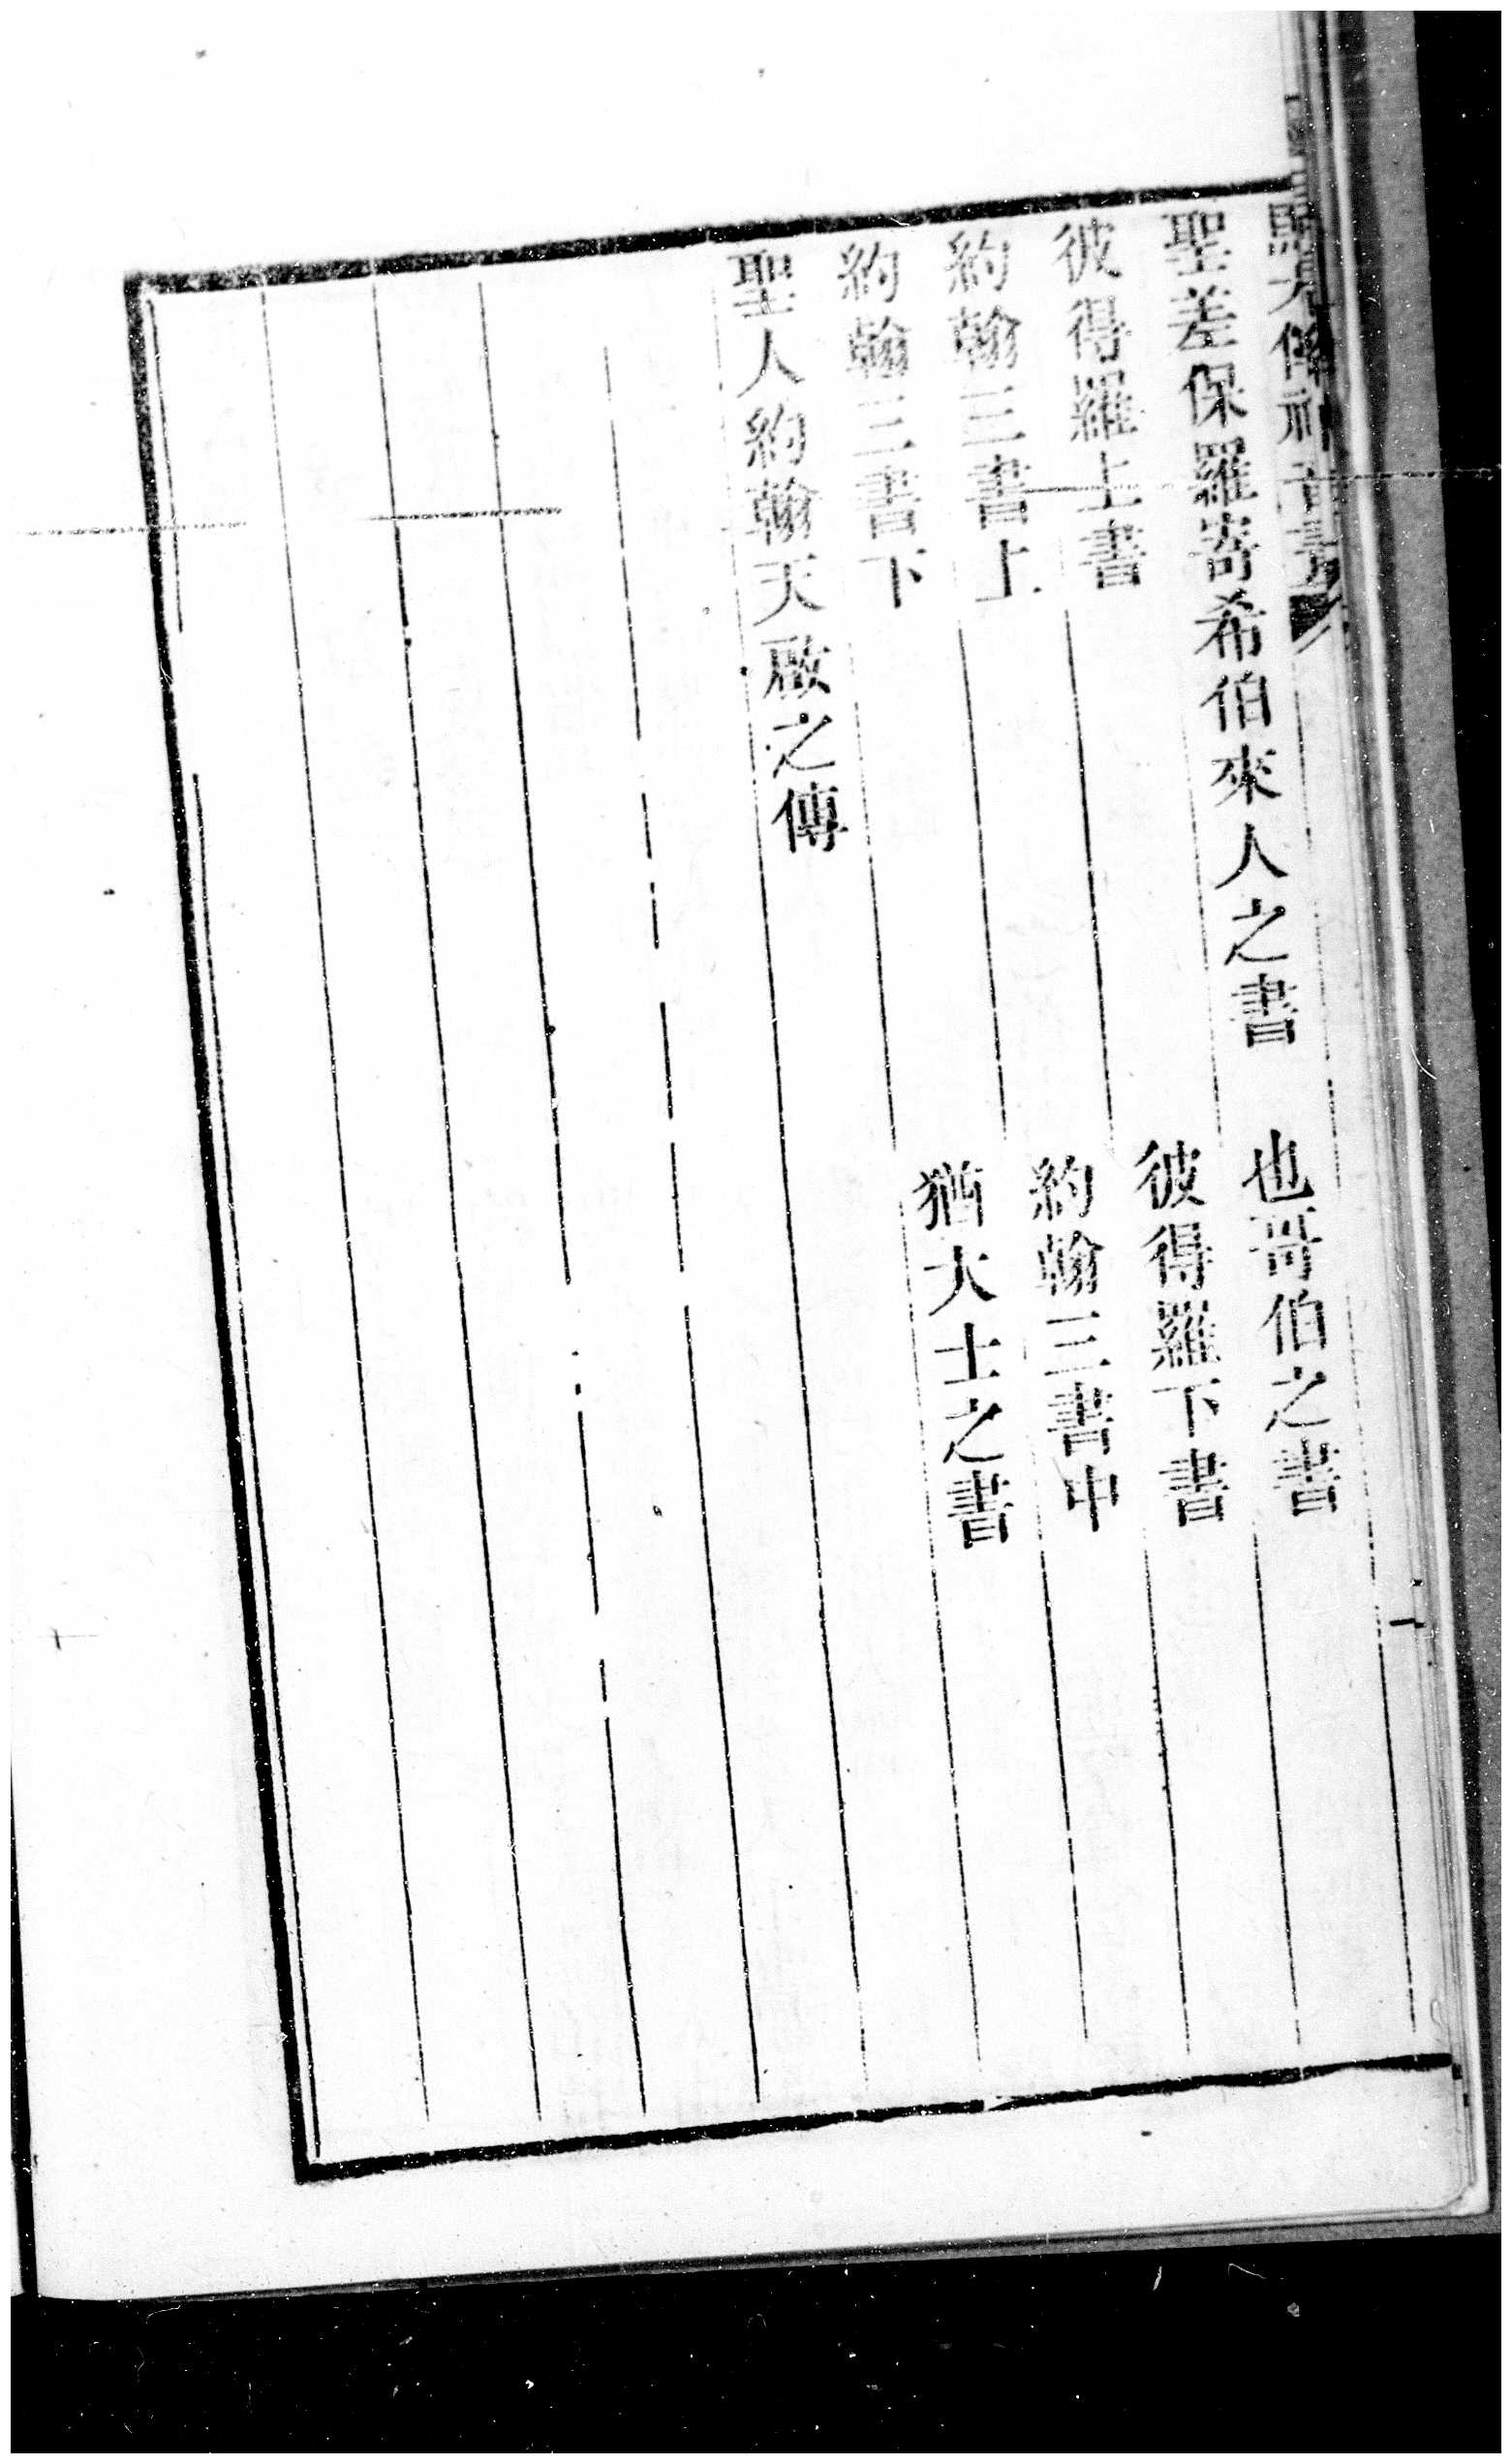 聖差保羅寄希伯來人之書　也哥伯之書
彼得羅上書　彼得羅下書
約翰三書上　約翰三書中
約翰三書下　猶大士之書
聖人約翰天啟之傳